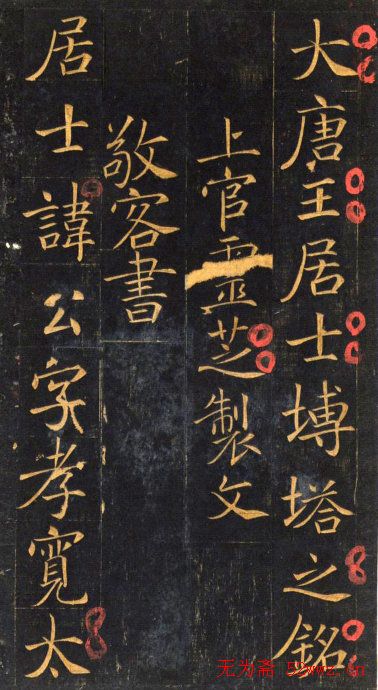 大唐王居士塼塔之銘
上官靈芝製文
敬客書
居士諱公字孝寬太
无为斋 59wwz.cn